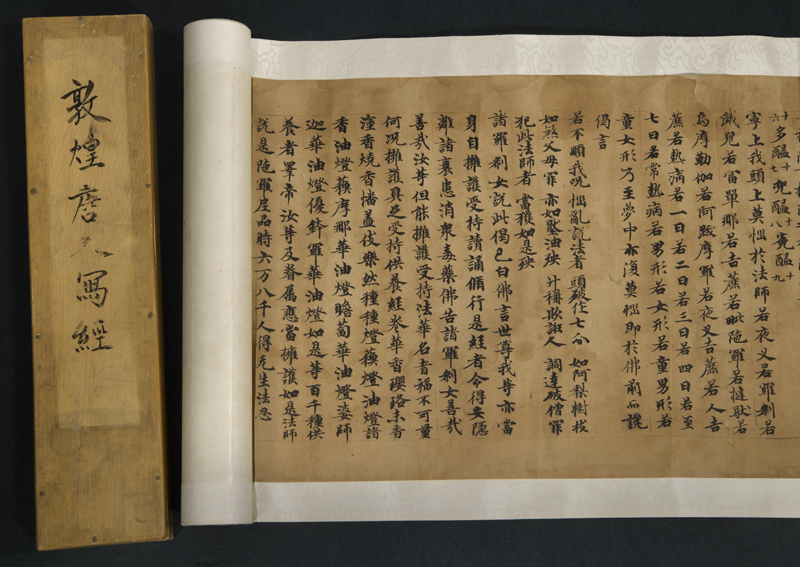 敦煌唐人寫經
十六多醯十七兜醯十八㝹醯十九
寧上我頭上莫惱於法師若夜叉若羅剎若
餓鬼若富單那若吉蔗若毗陁羅若揵馱若
烏摩勒伽若阿跋摩羅若夜叉吉蔗若人吉
蔗若熱病若一日若二日若三日若四日若至
七日若常熱病若男形若女形若童男形若
童女形乃至夢中亦復莫惱即於佛前而說
偈言
若不順我呪 惱亂說法者 頭破作七分 如阿梨樹枝
如煞父母罪 亦如壓油殃 斗稱欺誑人 調達破僧罪
犯此法師者 當獲如是殃
諸羅剎女說此偈已白佛言世尊我等亦當
身自擁護受持讀誦脩行是經者令得安隱
離諸衰患消衆毒藥佛告諸羅剎女善哉
善哉汝等但能擁護受持法華名者福不可量
何況擁護具足受持供養經卷華香瓔珞末香
塗香燒香幡蓋伎樂然種種燈蘇燈油燈諸
香油燈蘇摩那華油燈瞻蔔華油燈婆師
迦華油燈優鉢羅華油燈如是等百千種供
養者睪帝汝等及眷属應當擁護如是法師
說是陁羅尼品時六万八千人得无生法忍